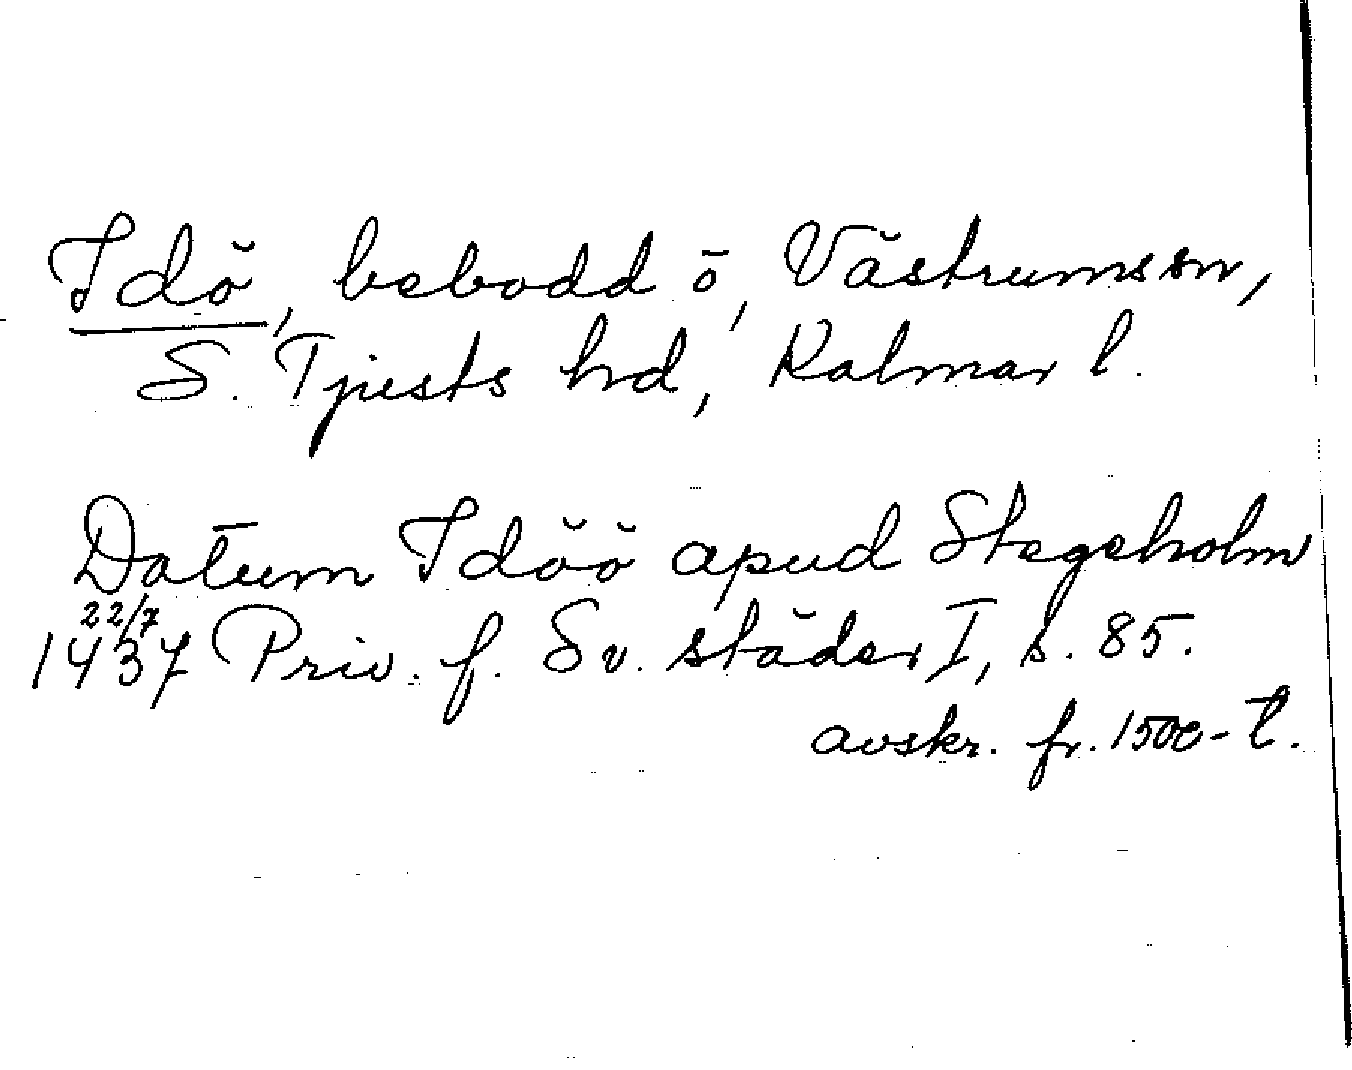 Idö, bebodd ö, Västrums sn,
S. Tjusts hd, Kalmar l.
Datum Idöö apud Stegeholm
22/7
1437 Priv. f. Sv. städer I, s. 85.
avskr. fr. 1500-t.